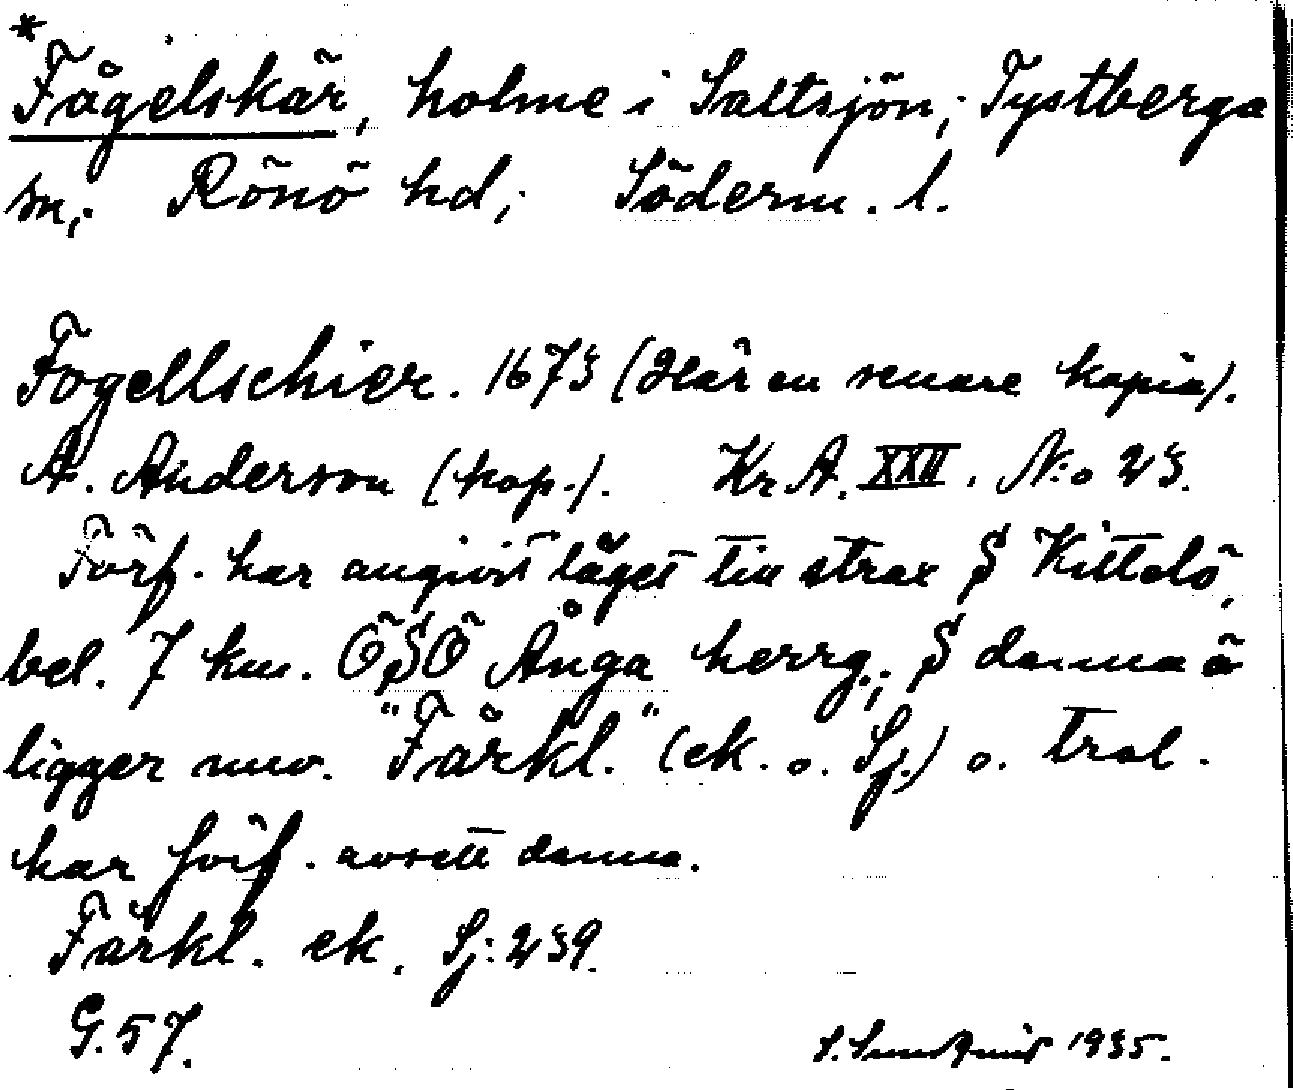 *
Fågelskär, holme i Saltsjön; Tystberga
sn; Rönö hd; Söderm. l.
Fogellschier. 1673 (Här en senare kopia).
A. Anderson (kop.). Kr A. XXII. N:o 23.
Förf. har angivit läget till strax S Kittelö,
bel. 7 km. ÖSÖ Ånga herrg.; S denna ö
ligger nuv. "Färkl." (ek. o. Sj.) o. trol.
har förf. avsett denna.
Färkl. ek. Sj: 239.
G. 57.
S. 1935.